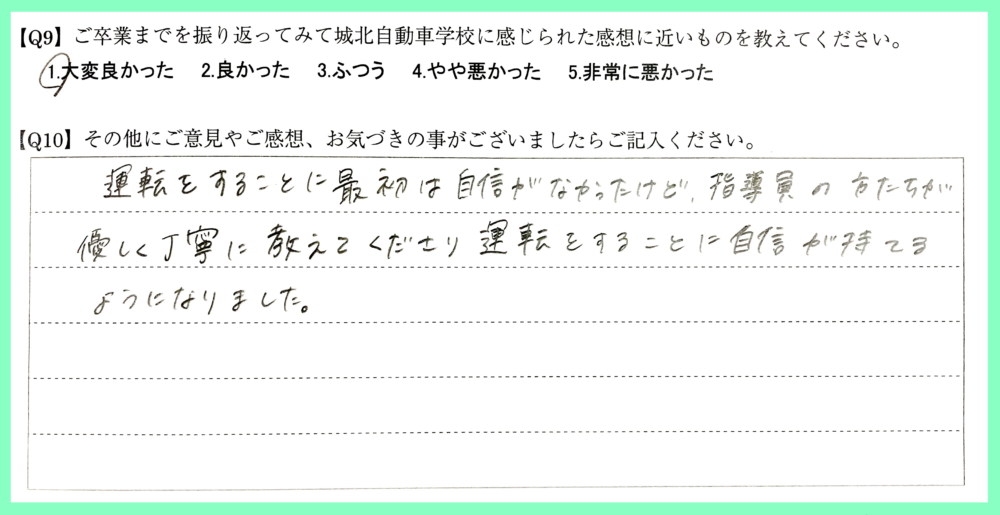 【Q9】ご卒業までを振り返ってみて城北自動車学校に感じられた感想に近いものを教えてください。
1.大変良かった 2.良かった 3.ふつう 4.やや悪かった 5.非常に悪かった
【Q10】その他にご意見やご感想、お気づきの事がございましたらご記入ください。
運転をすることに最初は自信がなかったけど、指導員の方たちが
優しく丁寧に教えてくださり運転をすることに自信が持てる
ようになりました。